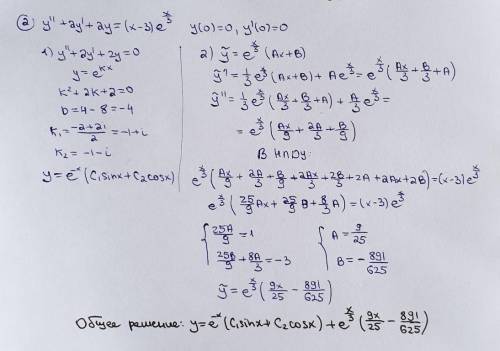 ② y'' + 2y' + 2y = (x-3)e^{x/3}   y(0)=0, y'(0)=0
1) y'' + 2y' + 2y = 0
y = e^{kx}
k² + 2k + 2 = 0
D = 4 - 8 = -4
k₁ = (-2+2i)/2 = -1+i
k₂ = -1-i
y = e^{-x}(C₁sinx + C₂cosx)
2) ỹ = e^{x/3}(Ax+B)
ỹ' = 1/3 e^{x/3}(Ax+B) + Ae^{x/3} = e^{x/3}(Ax/3 + B/3 + A)
ỹ'' = 1/3 e^{x/3}(Ax/3 + B/3 + A) + A/3 e^{x/3} =
= e^{x/3}(Ax/9 + 2A/3 + B/9)
В НЛДУ:
e^{x/3}(Ax/9 + 2A/3 + B/9 + 2Ax/3 + 2B/3 + 2A + 2Ax + 2B) = (x-3)e^{x/3}
e^{x/3}(25/9 Ax + 25/9 B + 8/3 A) = (x-3)e^{x/3}
{ 25A/9 = 1   { A = 9/25
25B/9 + 8A/3 = -3   B = -891/625
ỹ = e^{x/3}(9x/25 - 891/625)
Общее решение: y = e^{-x}(C₁sinx + C₂cosx) + e^{x/3}(9x/25 - 891/625)